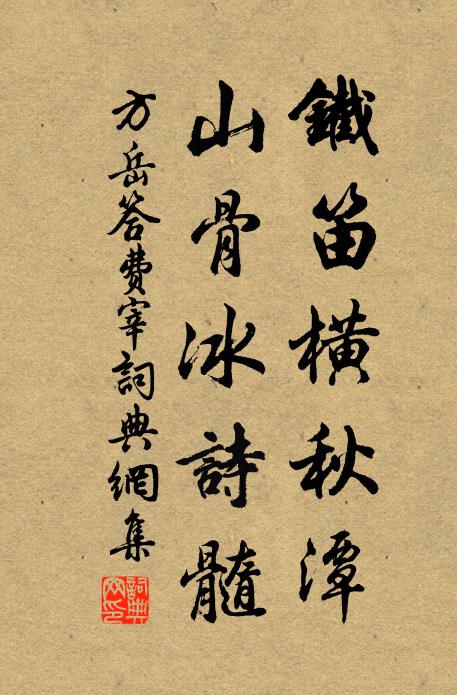 鐵笛橫秋潭
山骨冰詩髓
方岳答費宰詞典網集
詞典網印